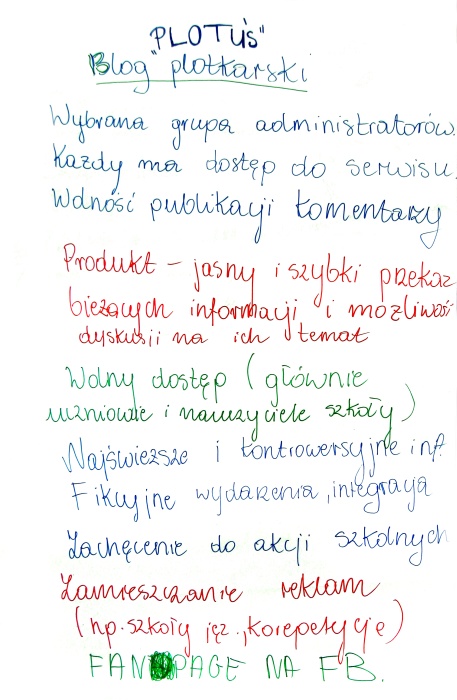 "PLOTUŚ"
Blog plotkarski
Wybrana grupa administratorów.
Każdy ma dostęp do serwisu.
Wolność publikacji komentarzy
Produkt – jasny i szybki przekaz
bieżących informacji i możliwość
dyskusji na ich temat
Wolny dostęp (głównie
uczniowie i nauczyciele szkoły)
Najświeższe i kontrowersyjne inf.
Fikcyjne wydarzenia, integracja
Zachęcenie do akcji szkolnych
Zamieszczanie reklam
(np. szkoły jęz., korepetycje)
FANPAGE NA FB.